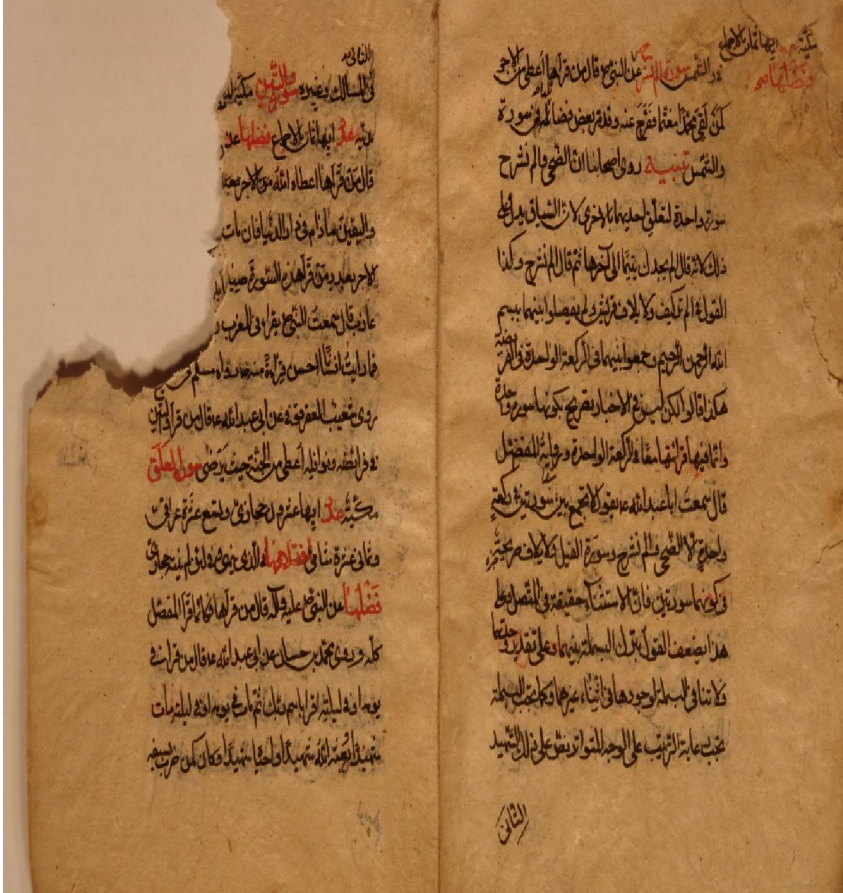 مكية ايها ثمان بالاجماع
فضلها
والشمس سورة الم نشرح عن النبي ص قال من قرأها أعطى من الاجر
كمن لقى محمدا مغتما ففرج عنه وقد مر بعض فضائلها في سورة
والشمس تنبيه روى اصحابنا ان الضحى والم نشرح
سورة واحدة لتعلق احديهما بالاخرى لان السياق يدل على
ذلك لانه قال الم يجدك يتيما الى آخرها ثم قال الم نشرح وكذا
القول في الم تر كيف ولايلاف قريش ولم يفصلوا بينهما ببسم
الله الرحمن الرحيم وجمعوا بينهما في الركعة الواحدة في الفريضة
هكذا قالوا لكن ليس في الاخبار تصريح بكونها سورة واحدة
وانما فيها قرائتهما معا في الركعة الواحدة ورواية المفضل
قال سمعت ابا عبد الله ع يقول لا تجمع بين سورتين في ركعة
واحدة الا الضحى والم نشرح وسورة الفيل ولايلاف صريحة
في كونهما سورتين فان الاستثناء حقيقة في المتصل وعلى
هذا يضعف القول بترك البسملة بينهما وعلى تقدير وحدتهما
فلا تنافي البسملة لوجودها في اثناء غيرهما وكما يجب البسملة
يجب رعاية الترتيب على الوجه المتواتر نص على ذلك الشهيد
الثاني
الثاني
في المسالك وغيره سورة والتين مكية
عدد ايها ثمان بالاجماع فضلها
قال من قرأها اعطاه الله من الاجر
واليقين ما دام في دار الدنيا فان مات
الاجر بعدد من قرأ هذه السورة صيام
عازب قال سمعت النبي ص يقرأ في المغرب
فما رايت انسانا احسن قراءة منه رواه مسلم في
روى شعيب العقرقوفي عن ابي عبد الله ع قال من قرأ والتين
في فرائضه ونوافله أعطى من الجنة حيث يرضى سورة العلق
مكية عدد ايها عشرون حجازي وتسع عشرة عراقي
وثماني عشرة شامي اختلافها الذي ينهى
فضلها عن النبي صلى الله عليه وآله قال من قرأها فكانما قرأ المفصل
كله وروى محمد بن حسان عن ابي عبد الله ع قال من قرأ في
يومه او في ليلته اقرأ باسم ربك ثم مات في يومه او في ليلته مات
شهيدا وبعثه الله شهيدا واحياه شهيدا وكان كمن ضرب بسيفه